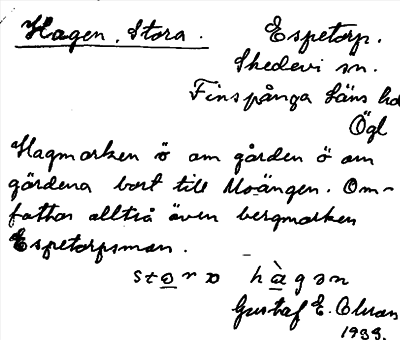 Hagen, Stora.
Espetorp.
Skedevi sn.
Finspånga läns hd
Ögl
Hagmarken ö om gården ö om
gärdena bort till Moängen. Om-
fattar alltså även bergmarken
Espetorpsmon.
hàgən
Gustaf E. Olsson
1933.